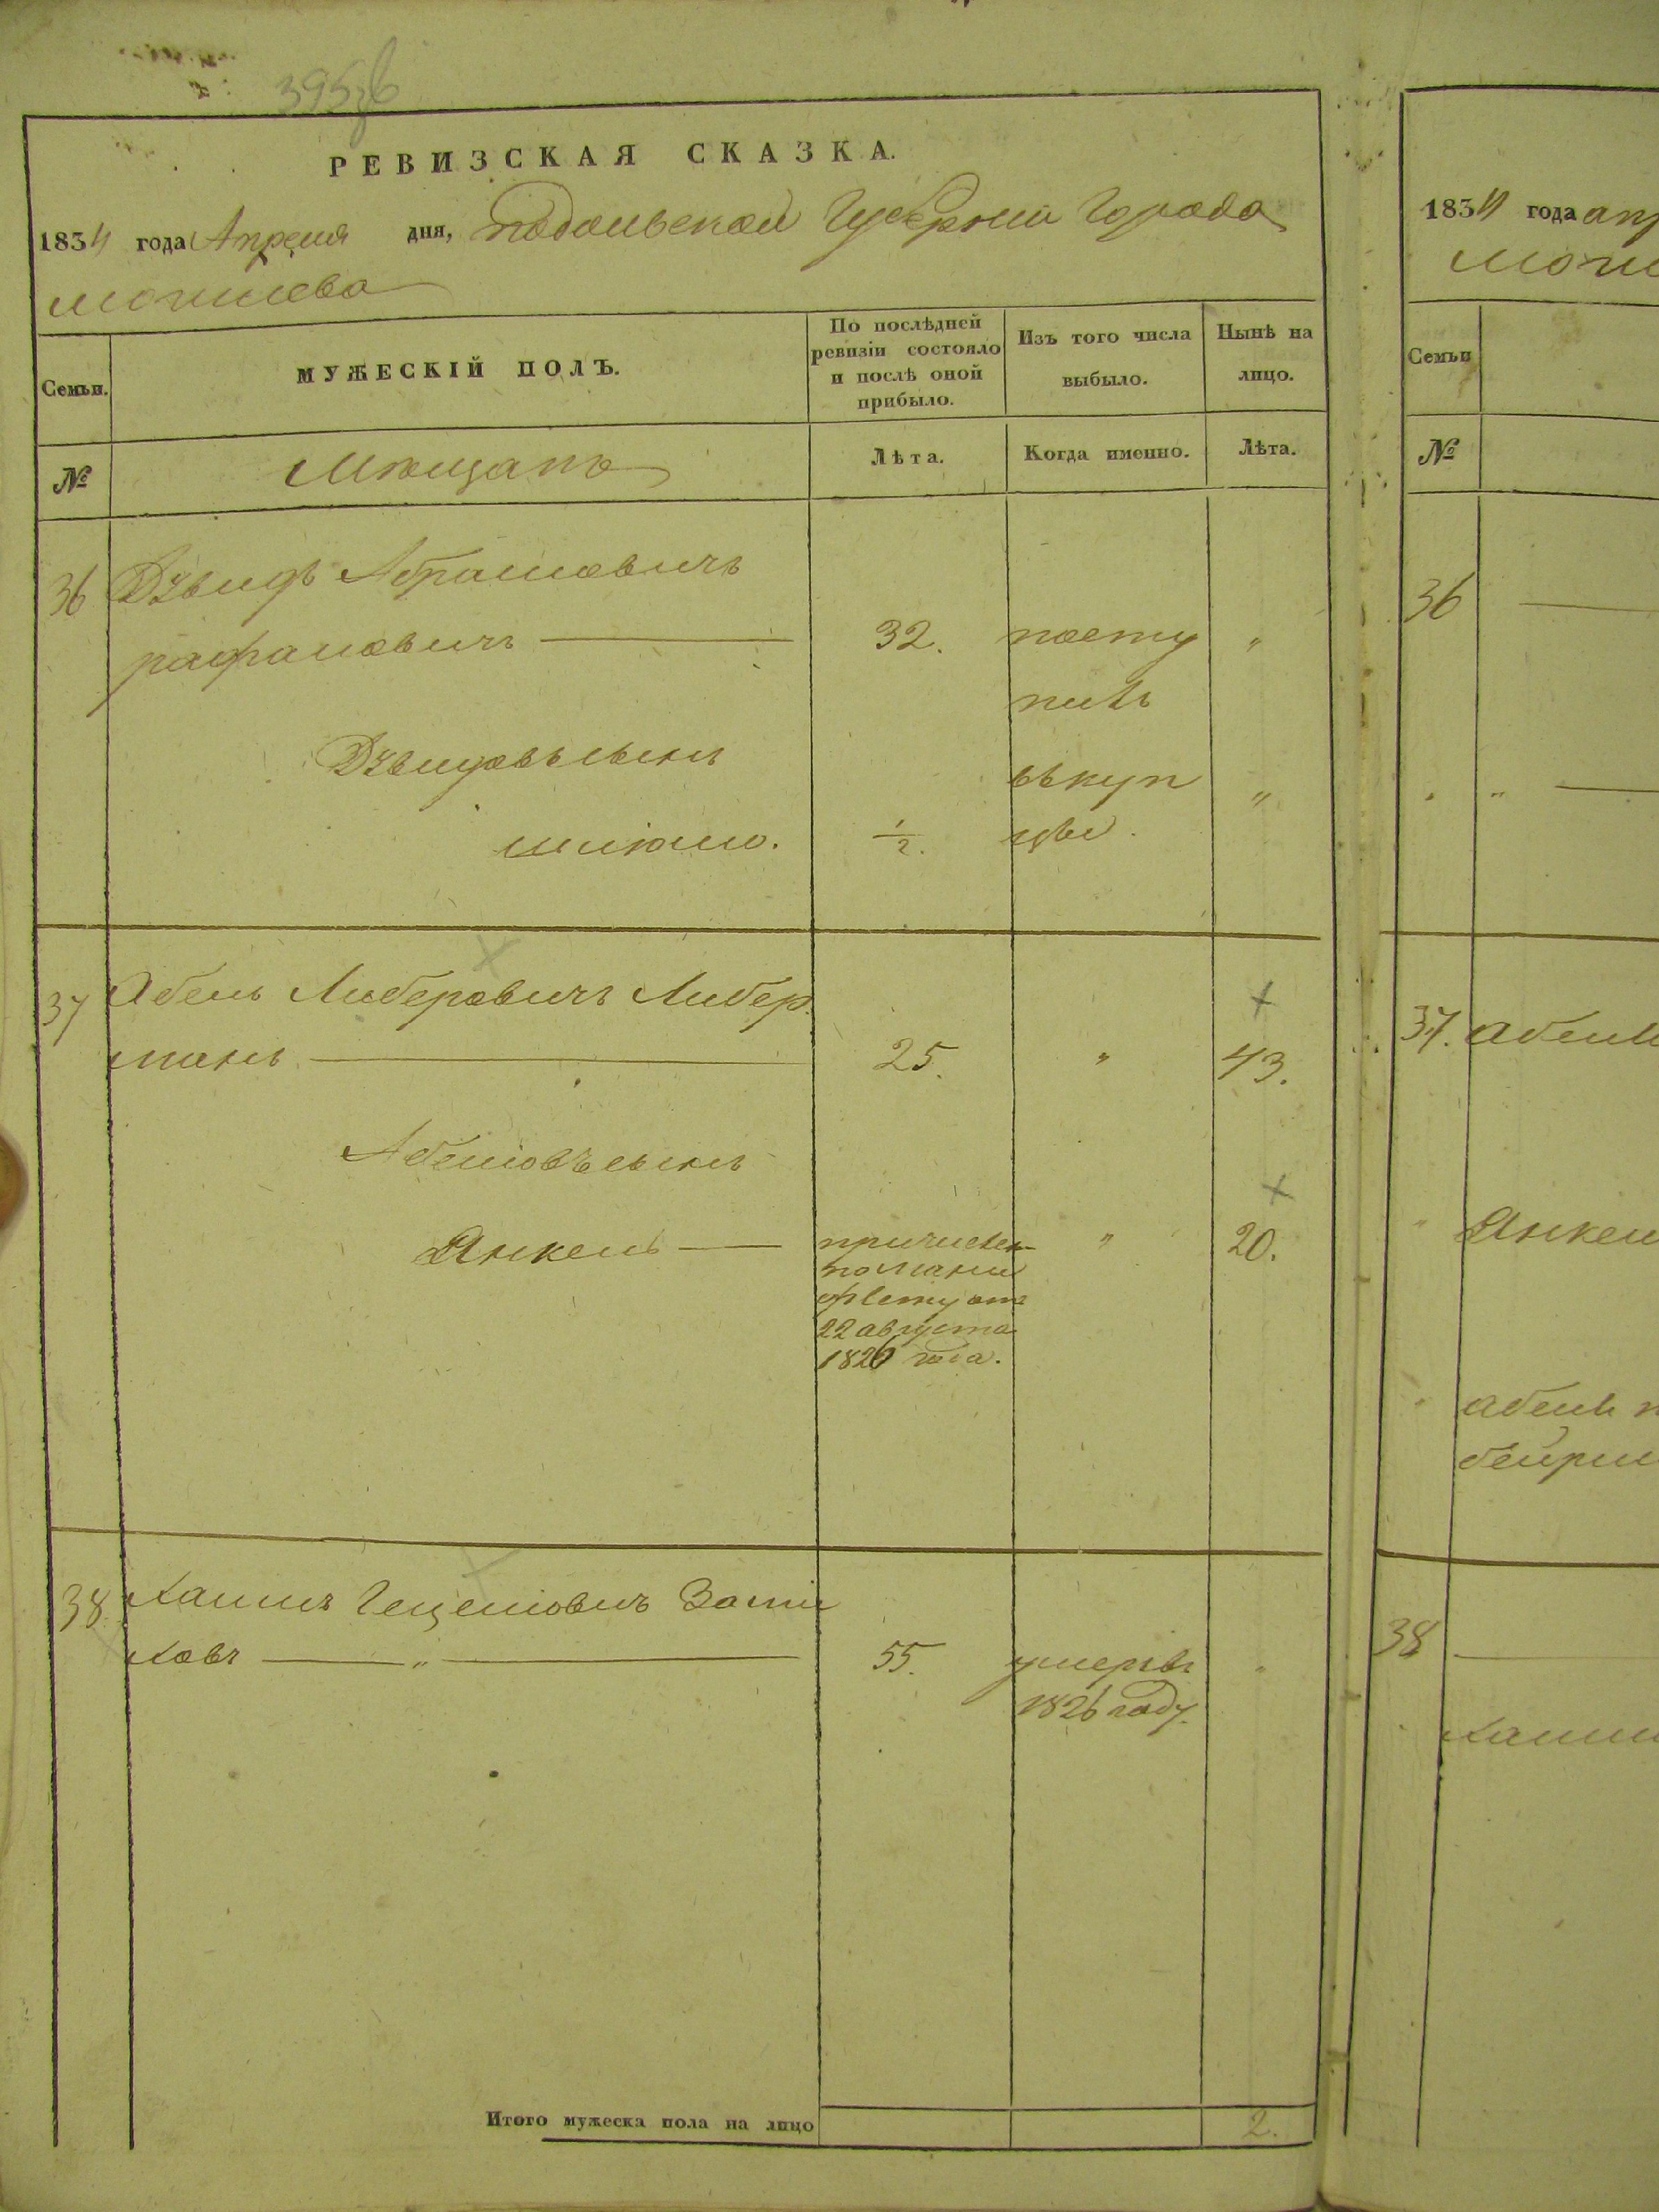 РЕВИЗСКАЯ СКАЗКА.
1834 года Апреля дня, подольской Губернии Города
могилева
Семьи.
МУЖЕСКІЙ ПОЛЪ.
По послѣдней
ревизіи состояло
и послѣ оной
прибыло.
Изъ того числа
выбыло.
Нынѣ на
лицо.
№
Мѣщанъ
Лѣта.
Когда именно.
Лѣта.
36 Абрамовичъ
рафаловичъ 32. посту „
пилъ
сынъ вькуп „
шліомо. 1/2. цы.
37 Абель Либеровичъ Либер
манъ 25. „ 43.
Абеліовъ сынъ
Янкель причислен „ 20.
по мани
фесту от
22 августа
1826 года.
38 Хаимъ
ковъ „ 55. умеръ „
1826 году.
Итого мужеска пола на лицо 2.
1834 года апр
моги
Семьи
№
36
37. абель
Янкел
абеля
38
хаим